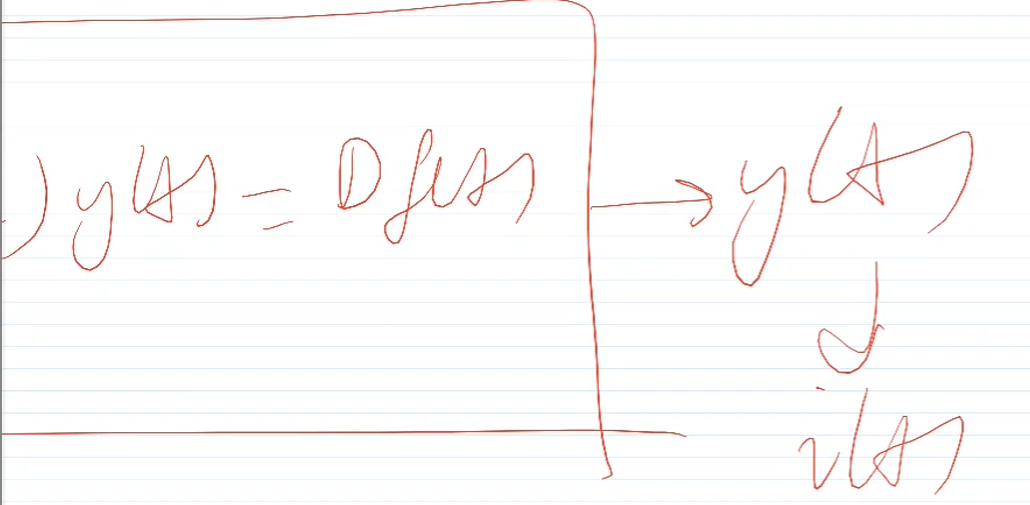 ) y(t) = D f(t) → y(t)
↓
i(t)